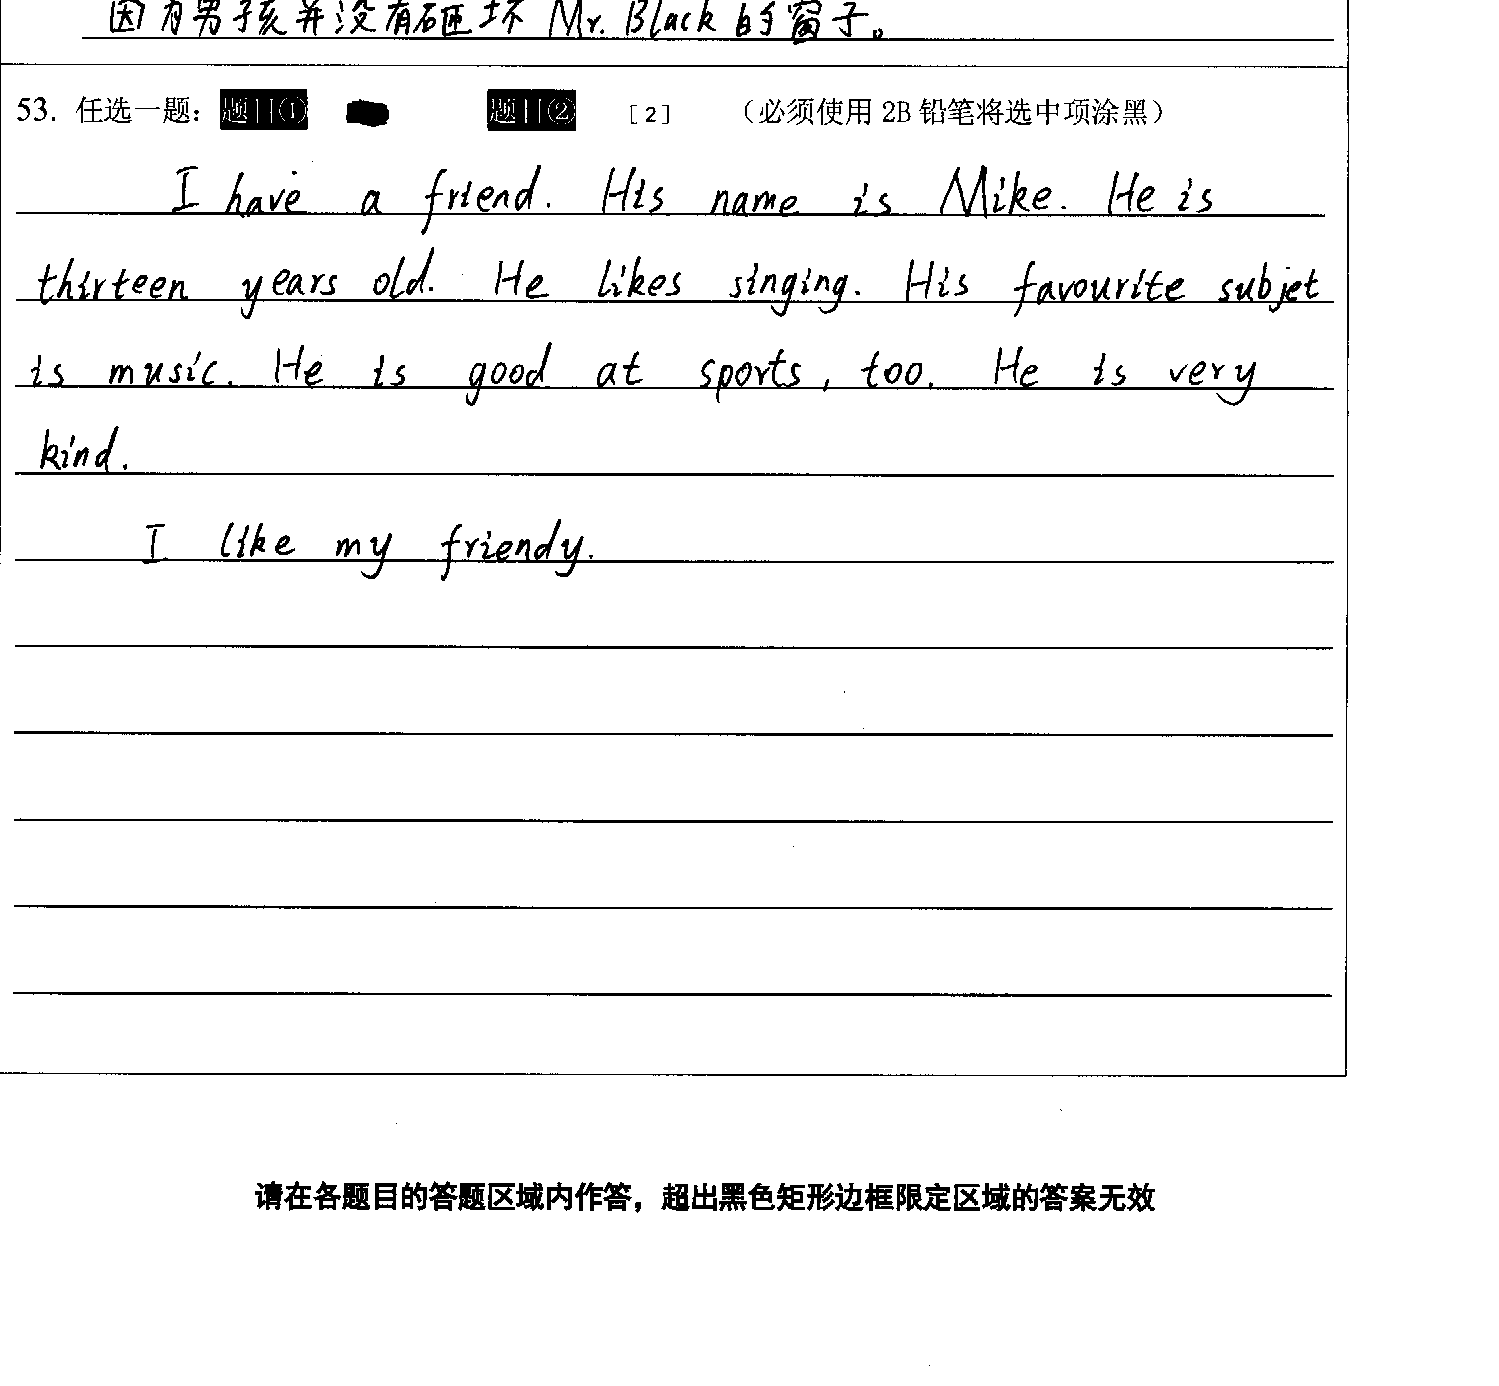 因为男孩并没有砸坏 Mr. Black 的窗子。
53. 任选一题: 题目① 题目② [2] (必须使用 2B 铅笔将选中项涂黑)
I have a friend. His name is Mike. He is
thirteen years old. He likes singing. His favourite subjet
is music. He is good at sports, too. He is very
kind.
I like my friendy.
请在各题目的答题区域内作答，超出黑色矩形边框限定区域的答案无效